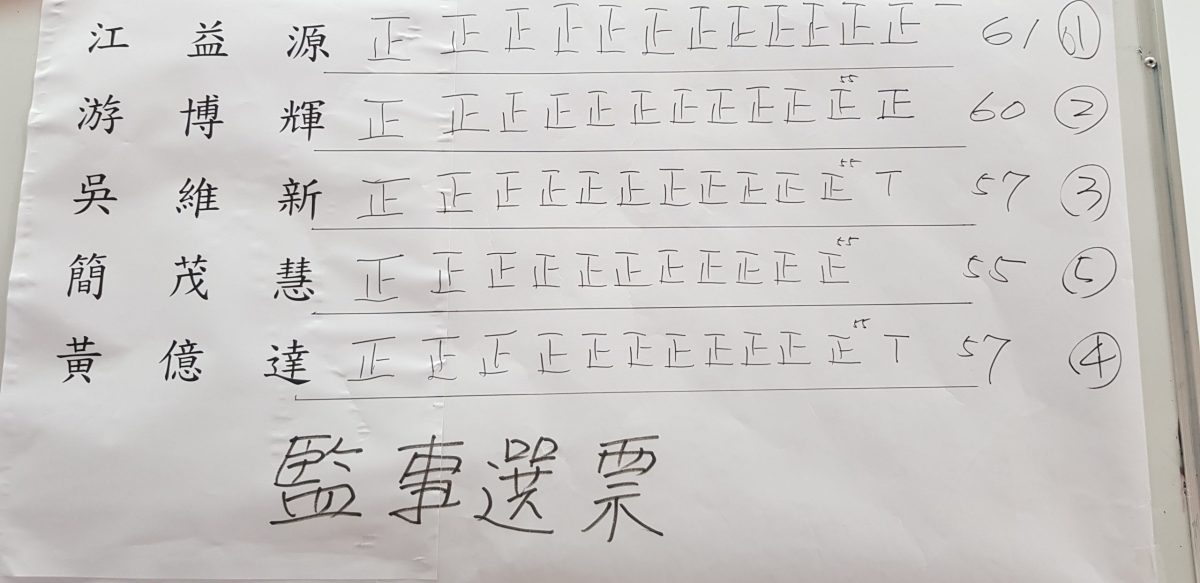 江益源 正正正正正正正正正正正正一 61 (61)
游博輝 正正正正正正正正正正正55正 60 ②
吳維新 正正正正正正正正正正正55丅 57 ③
簡茂慧 正正正正正正正正正正正55 55 ⑤
黃億達 正正正正正正正正正正正55丅 57 ④
監事選票